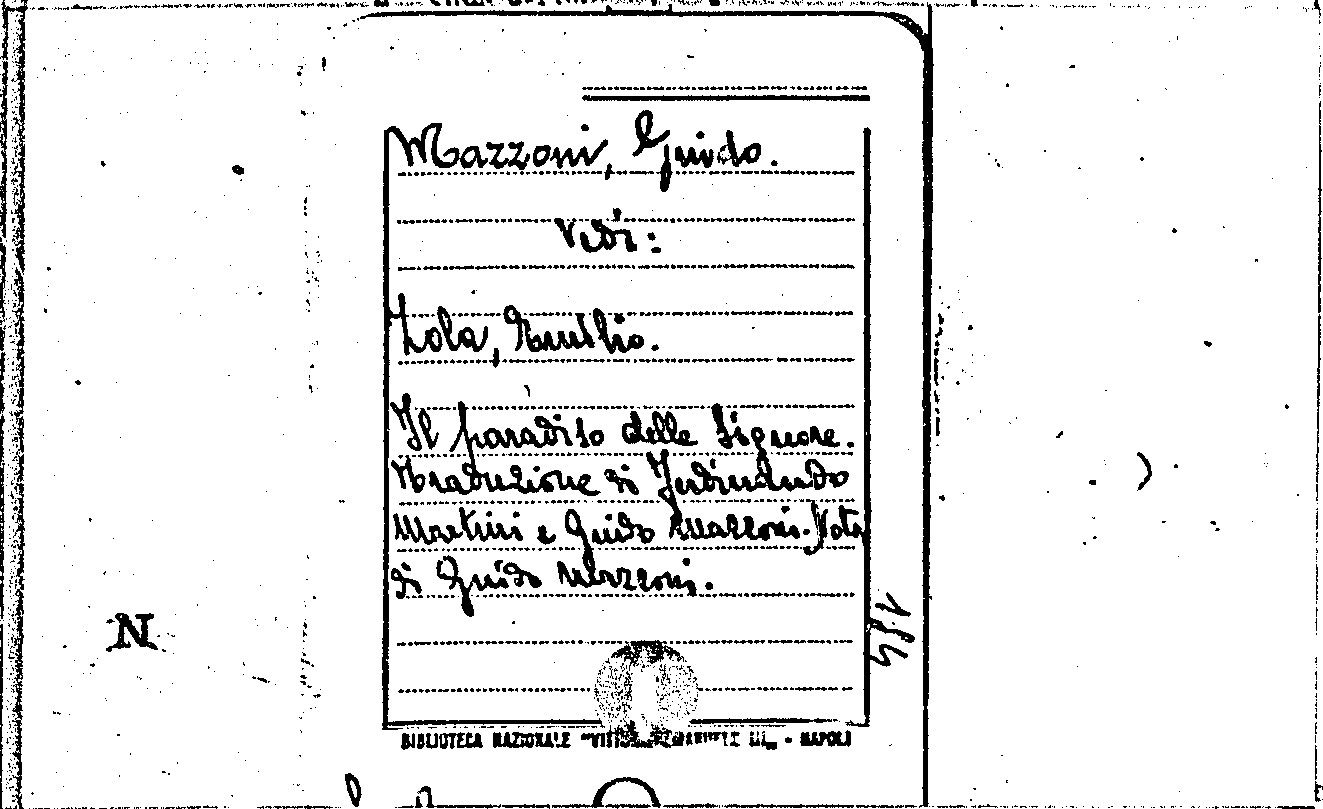 Mazzoni, Guido.
Vedi:
Zola, Emilio.
Il paradiso delle signore.
Traduzione di Ferdinando
Martini e Guido Mazzoni. Nota
di Guido Mazzoni.
184
N
BIBLIOTECA NAZIONALE "VITTORIO EMANUELE III" - NAPOLI